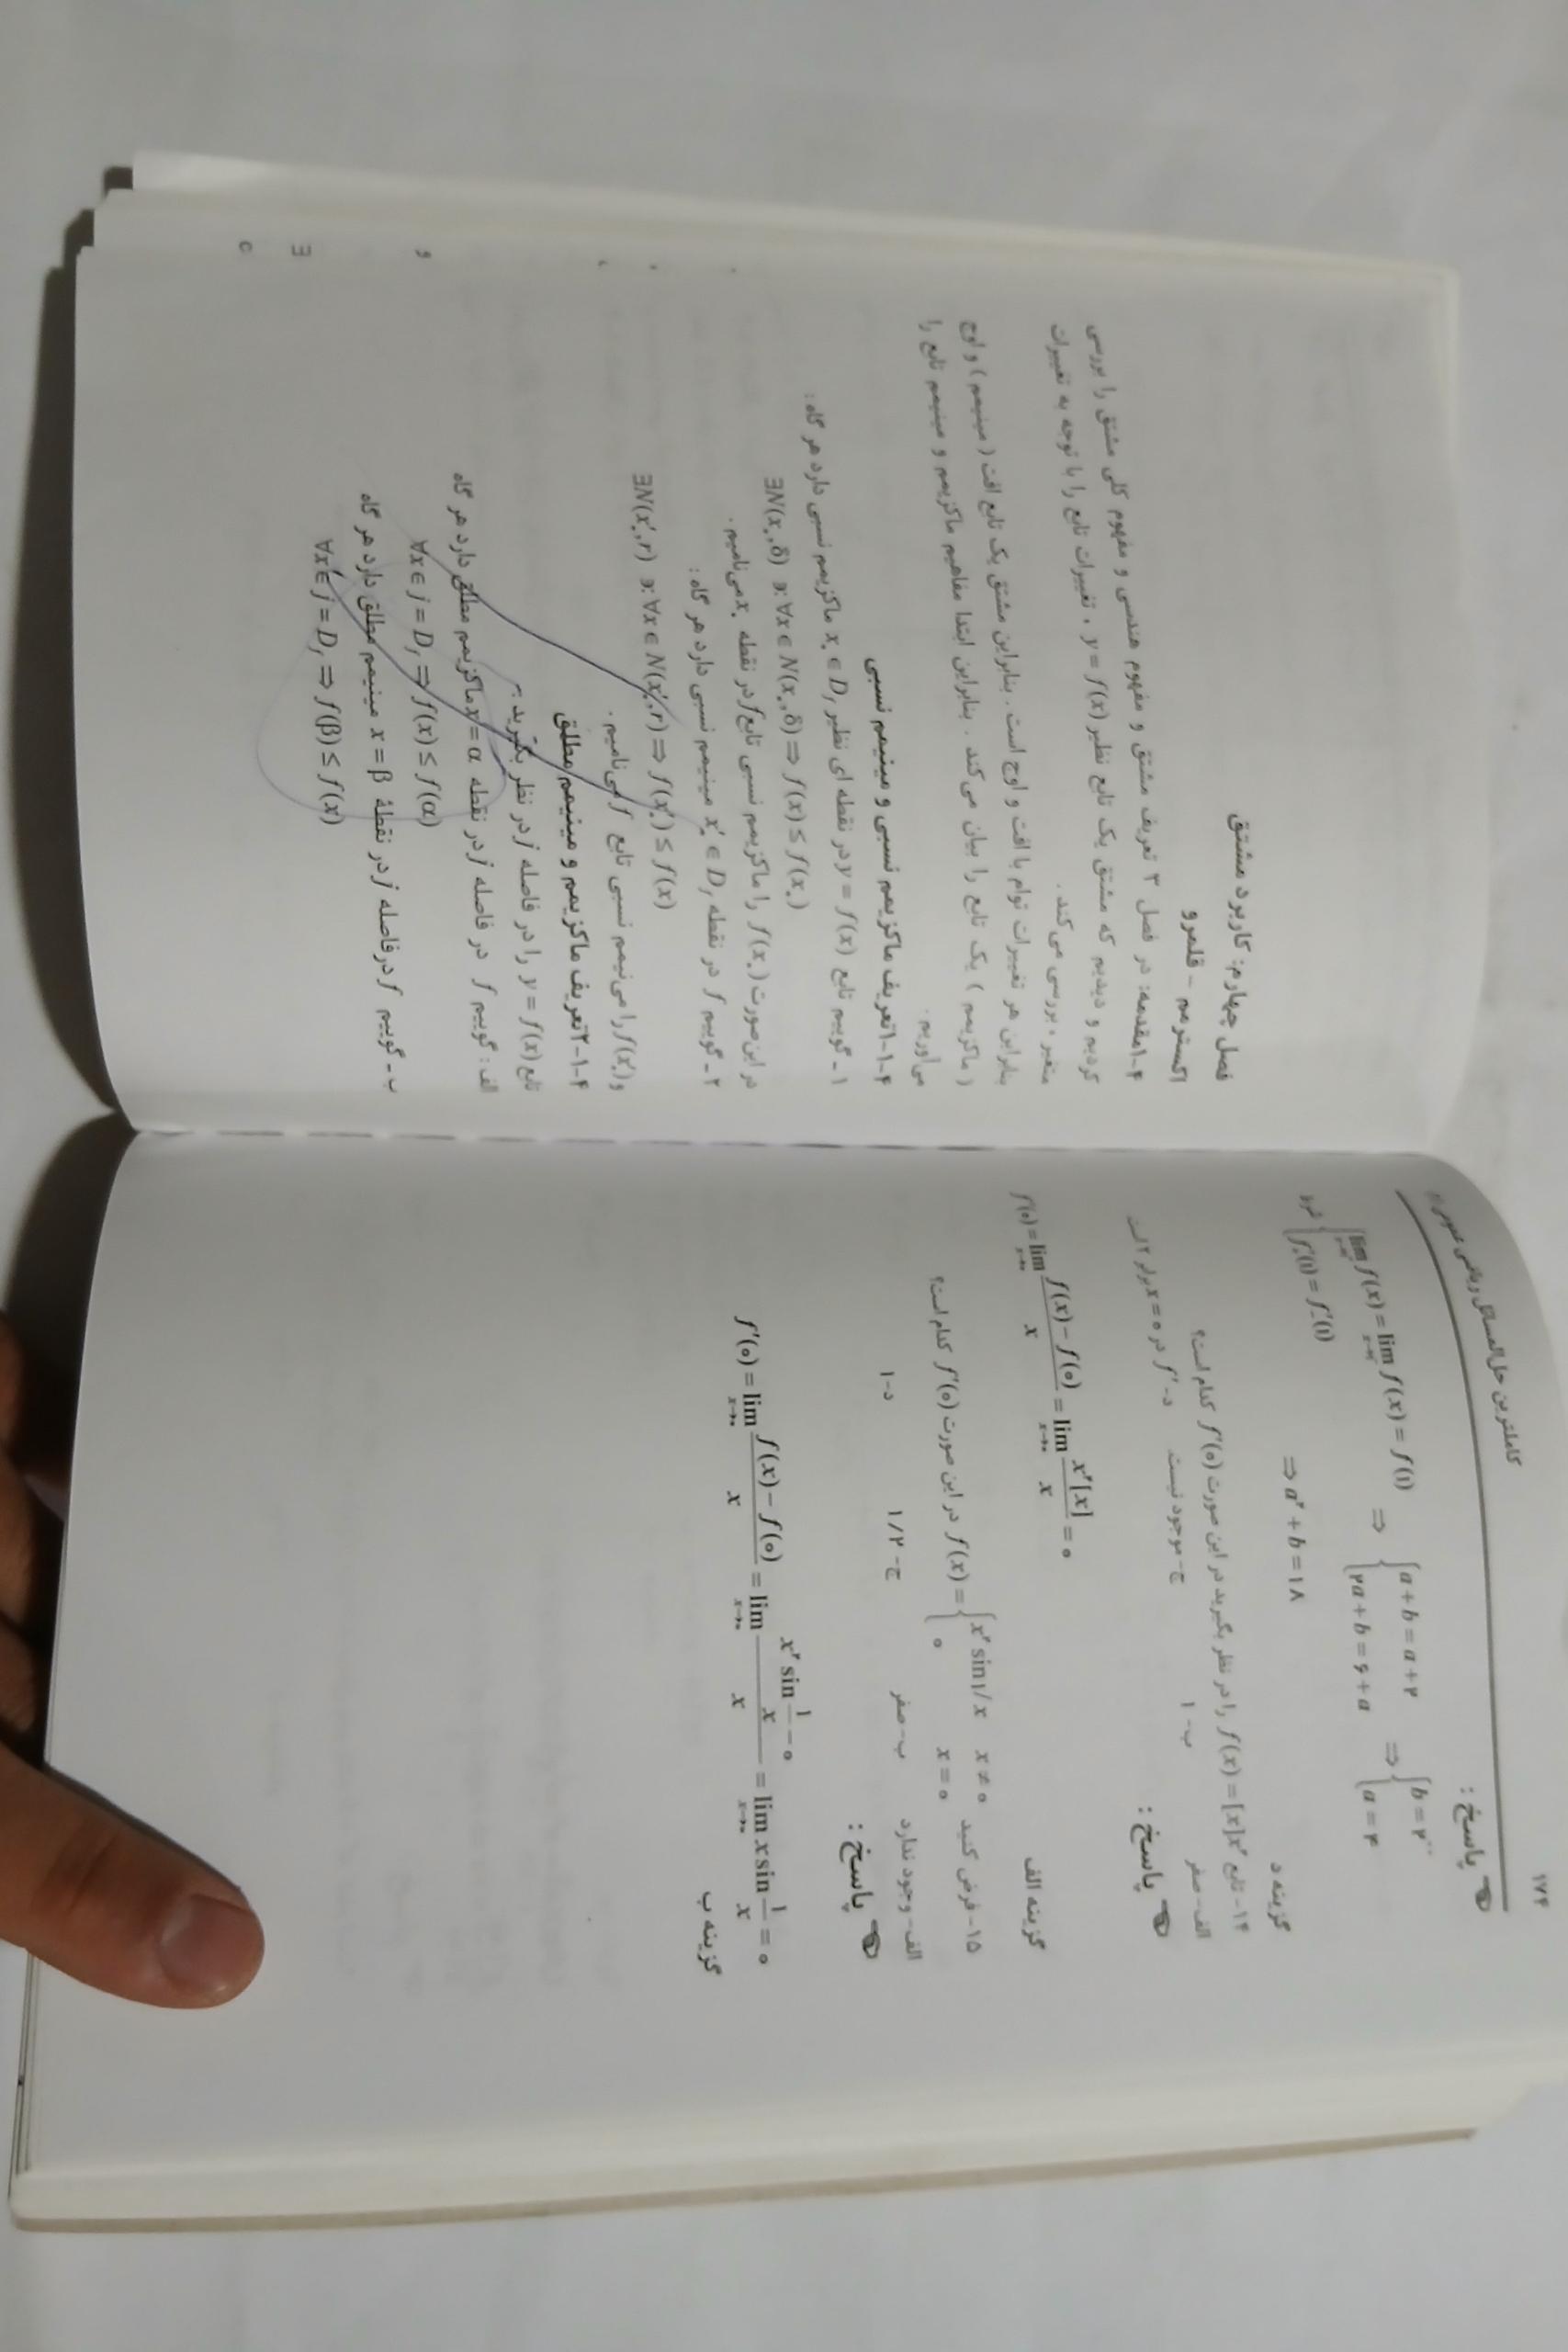 ۱۷۴
کاملترین حل المسائل ریاضی عمومی (۱)
پاسخ :
شرط { lim f(x) = lim f(x) = f(۱) ⇒ { a + b = a + ۲ ⇒ { b = ۲
f'₊(۱) = f'₋(۱) ۲a + b = ۶ + a a = ۴
⇒ a² + b = ۱۸
گزینه د
۱۴- تابع f(x) = [x]x² را در نظر بگیرید در این صورت f'(۰) کدام است؟
الف- صفر ب- ۱ ج- موجود نیست د- f' در x = ۰ برابر ۲ است
پاسخ :
f'(۰) = lim x→۰ (f(x) − f(۰))/x = lim x→۰ x²[x]/x = ۰
گزینه الف
۱۵- فرض کنید f(x) = { x² sin۱/x x ≠ ۰ در این صورت f'(۰) کدام است؟
۰ x = ۰
الف- وجود ندارد ب- صفر ج- ۱/۲ د- ۱
پاسخ :
f'(۰) = lim x→۰ (f(x) − f(۰))/x = lim x→۰ (x² sin ۱/x − ۰)/x = lim x→۰ x sin ۱/x = ۰
گزینه ب
فصل چهارم: کاربرد مشتق
اکسترمم - قلمرو
۴-۱مقدمه: در فصل ۳ تعریف مشتق و مفهوم هندسی و مفهوم کلی مشتق را بررسی
کردیم و دیدیم که مشتق یک تابع نظیر y = f(x) ، تغییرات تابع را با توجه به تغییرات
متغیر ، بررسی می کند .
بنابراین هر تغییرات توام با افت و اوج است . بنابراین مشتق یک تابع افت ( مینیمم ) و اوج
( ماکزیمم ) یک تابع را بیان می کند . بنابراین ابتدا مفاهیم ماکزیمم و مینیمم تابع را
می‌آوریم .
۴-۱-۱تعریف ماکزیمم نسبی و مینیمم نسبی
۱ - گوییم تابع y = f(x) در نقطه ای نظیر x₀ ∈ D_f ماکزیمم نسبی دارد هر گاه :
∃N(x₀,δ) ∋: ∀x ∈ N(x₀,δ) ⇒ f(x) ≤ f(x₀)
در این صورت f(x₀) را ماکزیمم نسبی تابع f در نقطه x₀ می‌نامیم .
۲ - گوییم f در نقطه x'₀ ∈ D_f مینیمم نسبی دارد هر گاه :
∃N(x'₀,r) ∋: ∀x ∈ N(x'₀,r) ⇒ f(x'₀) ≤ f(x)
و f(x'₀) را می نیمم نسبی تابع f می نامیم .
۴-۱-۲تعریف ماکزیمم و مینیمم مطلق
تابع y = f(x) را در فاصله j در نظر بگیرید :
الف : گوییم f در فاصله j در نقطه x = α ماکزیمم مطلق دارد هر گاه
∀x ∈ j = D_f ⇒ f(x) ≤ f(α)
ب - گوییم f در فاصله j در نقطهٔ x = β مینیمم مطلق دارد هر گاه
∀x ∈ j = D_f ⇒ f(β) ≤ f(x)